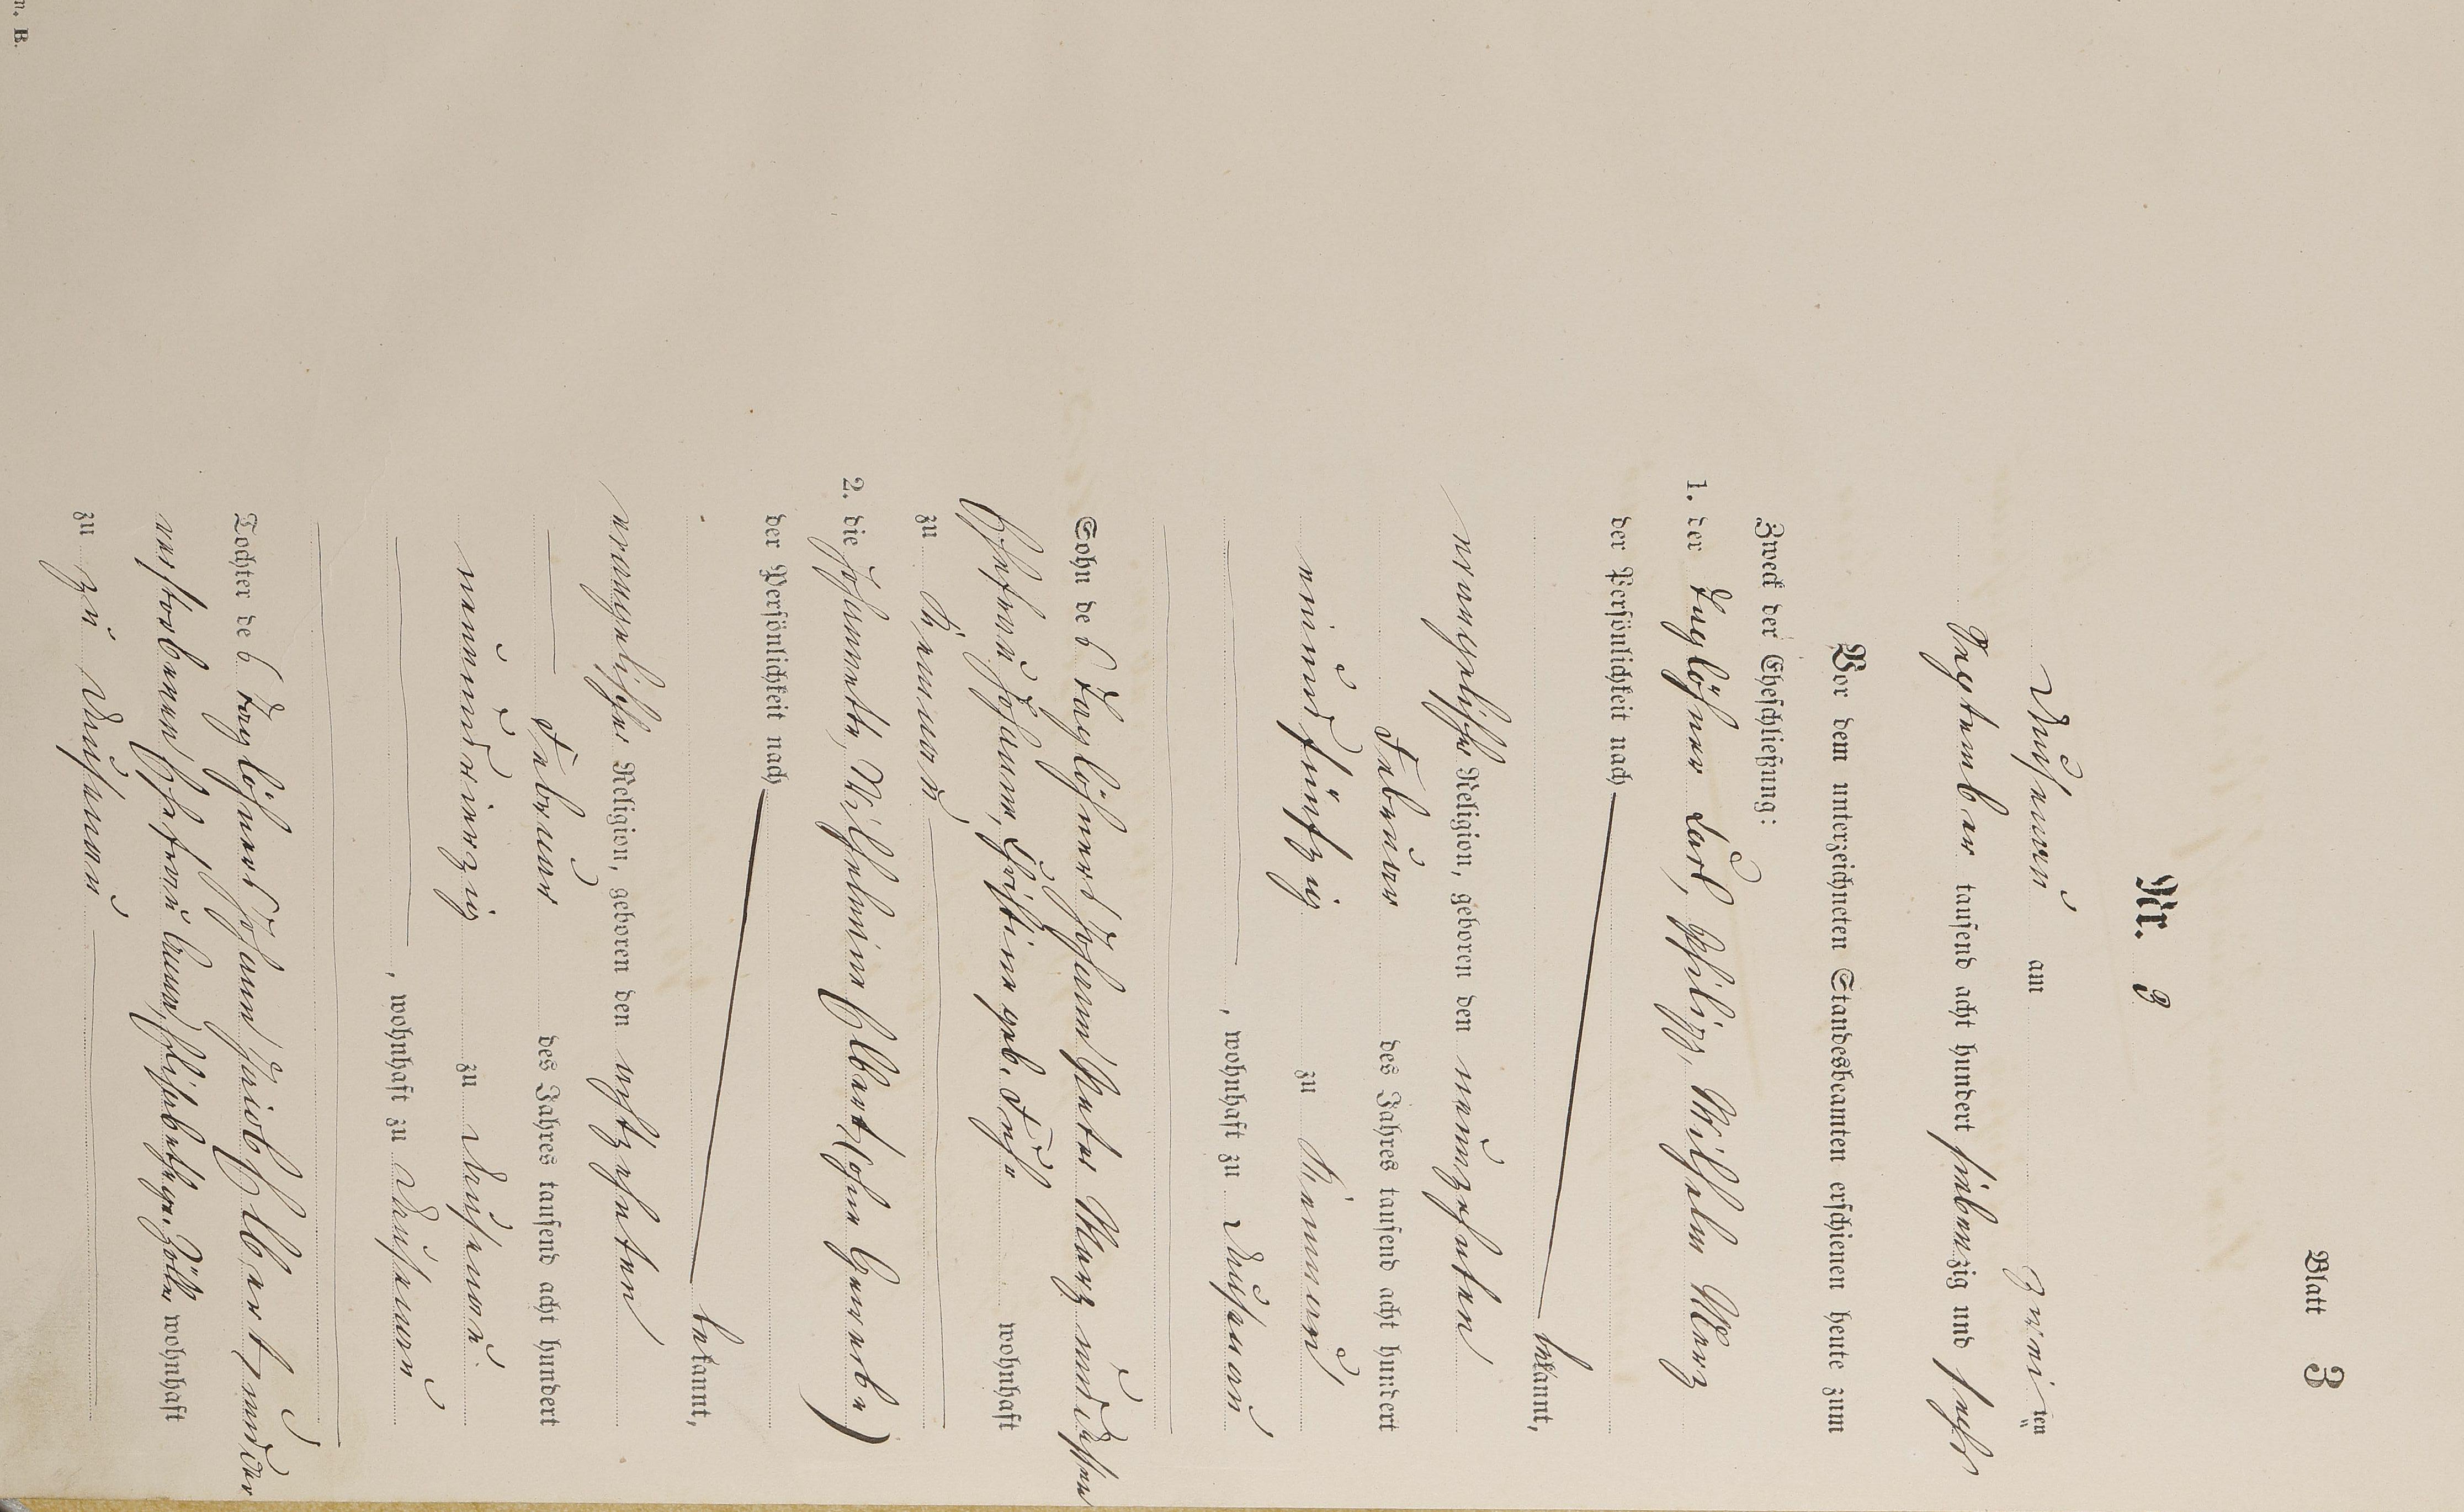 Blatt 3
Nr. 3
Dausenau am zweiten
September tausend acht hundert siebenzig und sechs
Vor dem unterzeichneten Standesbeamten erschienen heute zum
Zweck der Eheschließung:
1. der Taglöhner Carl, Philipp, Wilhelm Merz
der Persönlichkeit nach
bekannt,
evangelischer Religion, geboren den neunzehnten
Februar des Jahres tausend acht hundert
einundfünfzig zu Kemmenau
, wohnhaft zu Dausenau
Sohn des Taglöhners Johann Peter Merz und dessen
Ehefrau Johanne, Christine geb.
wohnhaft
zu Kemmenau
2. die Johannette, Wilhelmine Elbert (ohne Gewerbe)
der Persönlichkeit nach
bekannt,
evangelischer Religion, geboren den achtzehnten
Februar des Jahres tausend acht hundert
neunundvierzig zu Dausenau
, wohnhaft zu Dausenau
Tochter des Taglöhners Johann Jacob Elbert, und der
verstorbenen Ehefrau Anna, Elisabetha geb. wohnhaft
zu zu Dausenau
n. B.